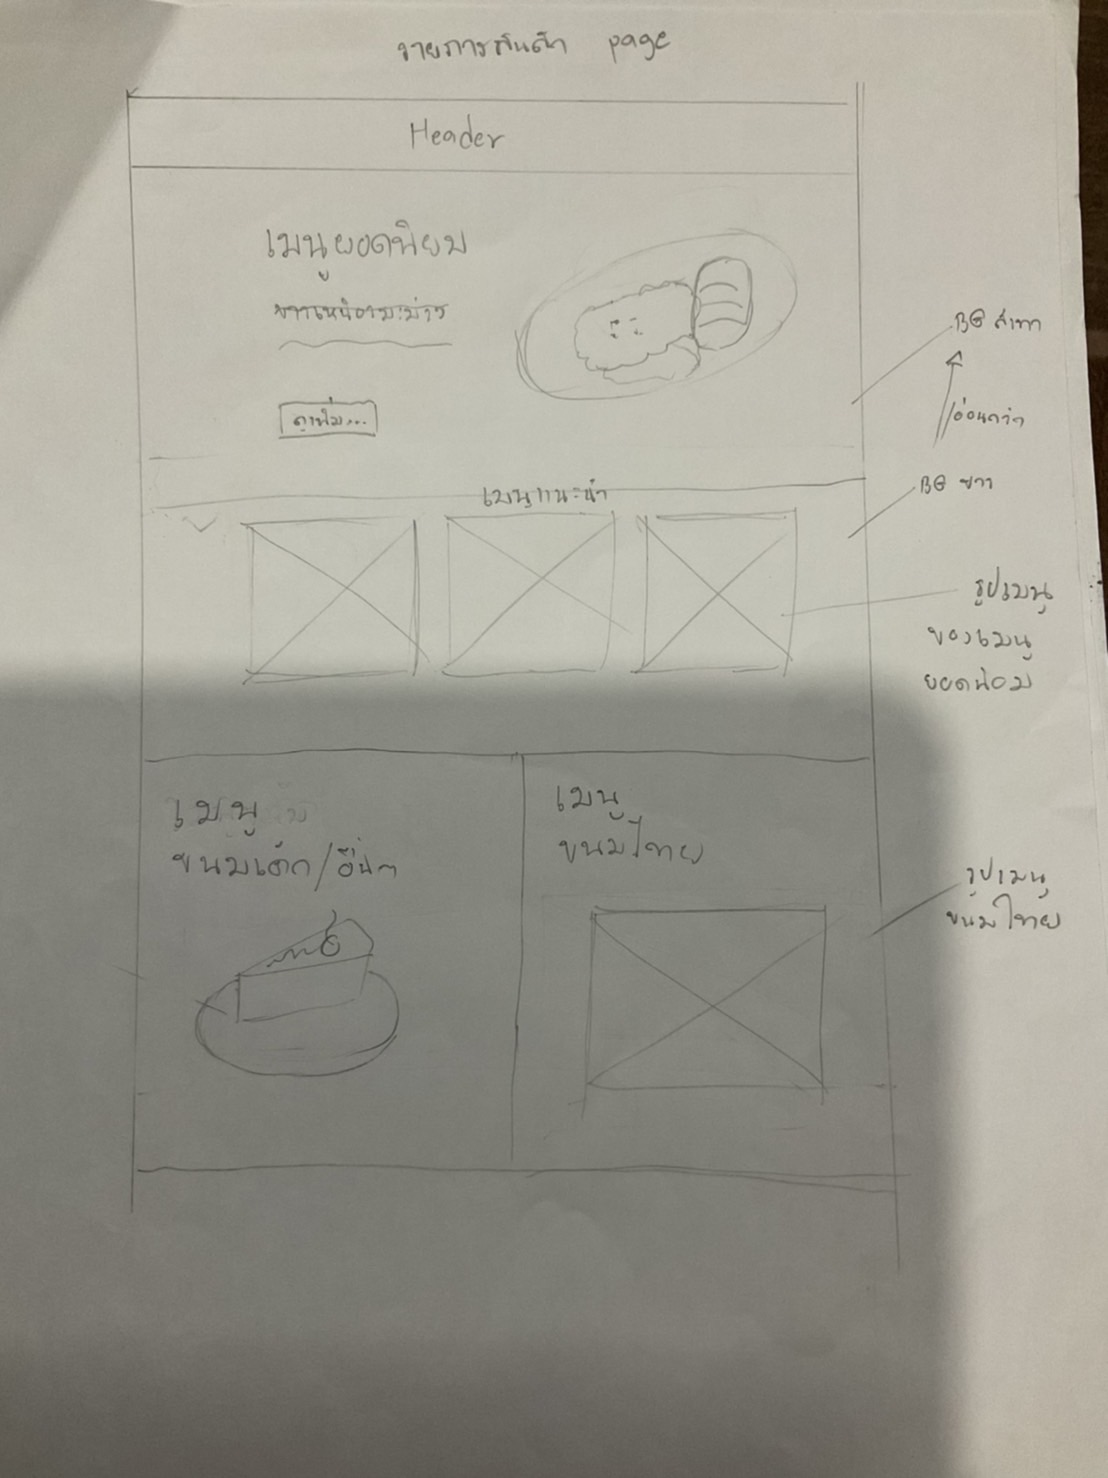 รายการสินค้า page
Header
เมนูยอดนิยม
ข้าวเหนียวมะม่วง
ดูเพิ่ม...
BG สีเทา
อ่อนกว่า
เมนูแนะนำ
BG ขาว
รูปเมนู
ของเมนู
ยอดนิยม
เมนู
ขนมเค้ก/อื่นๆ
เมนู
ขนมไทย
รูปเมนู
ขนมไทย